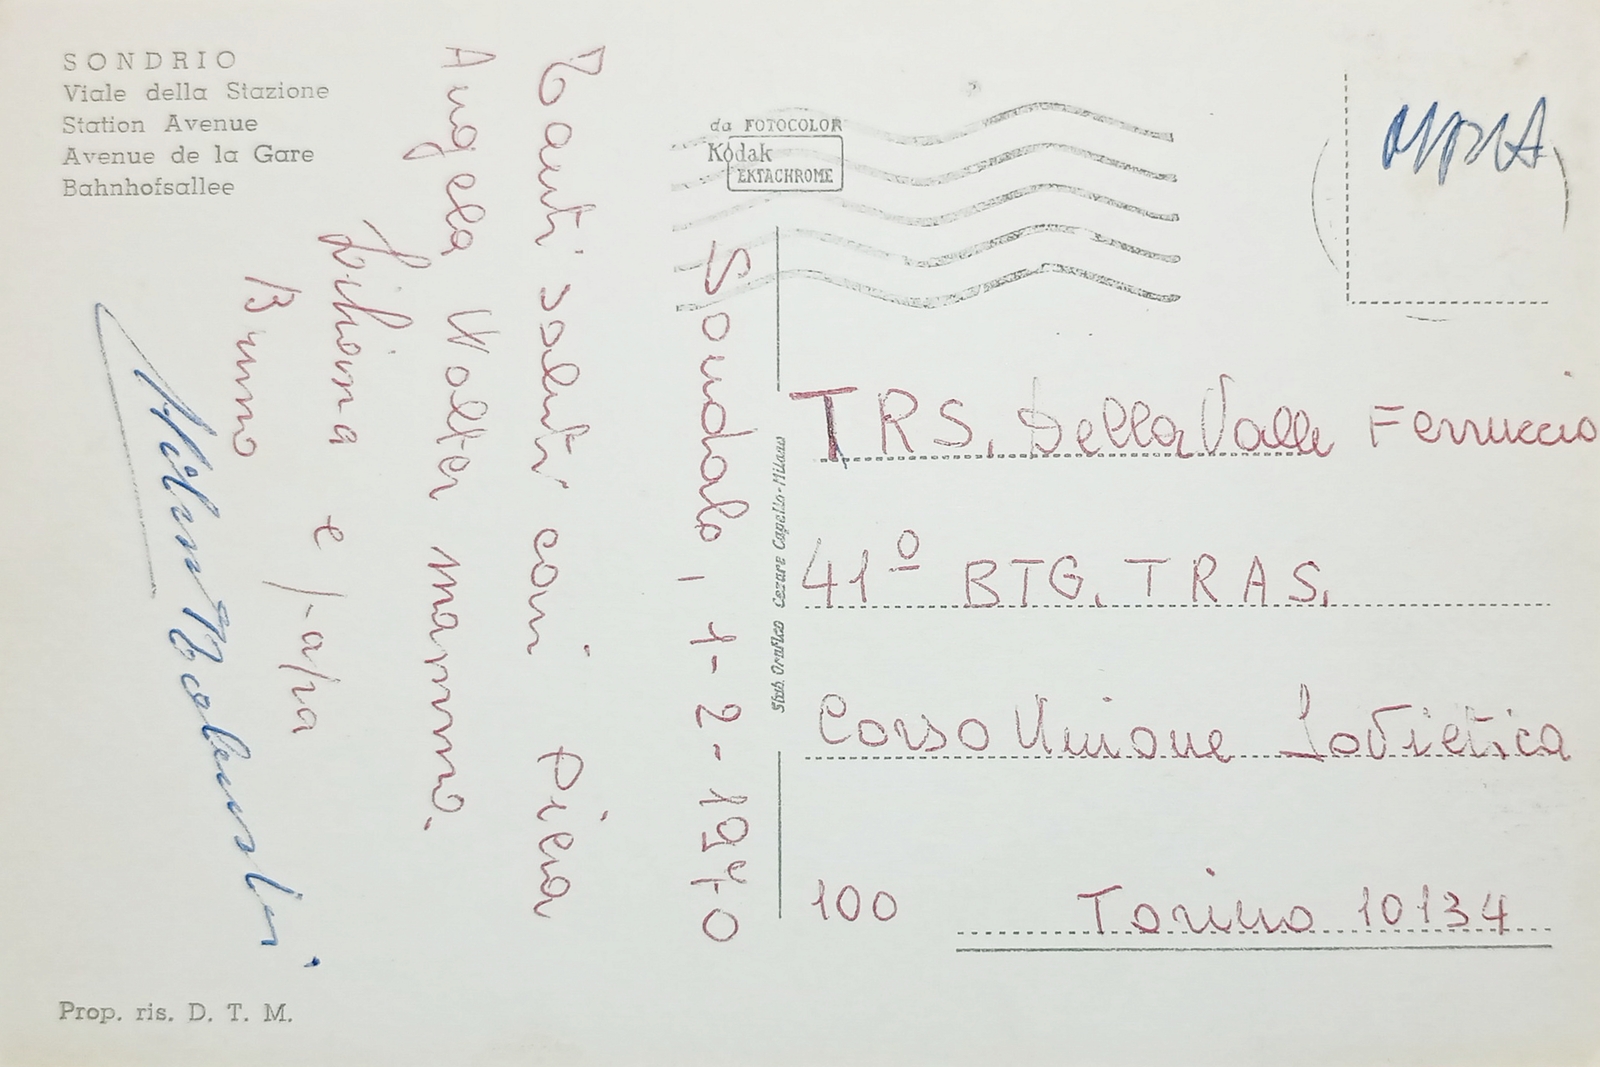 SONDRIO
Viale della Stazione
Station Avenue
Avenue de la Gare
Bahnhofsallee
da FOTOCOLOR
Kodak
EKTACHROME
Sondalo, 1-2-1970
Tanti saluti cari Piera
Angela Walter mammo.
Liliana e papa
Bruno
Stab. Grafico Cesare Capello-Milano
TRS. Della Valle Ferruccio
41º BTG. TRAS.
Corso Unione Sovietica
100 Torino 10134
Prop. ris. D. T. M.